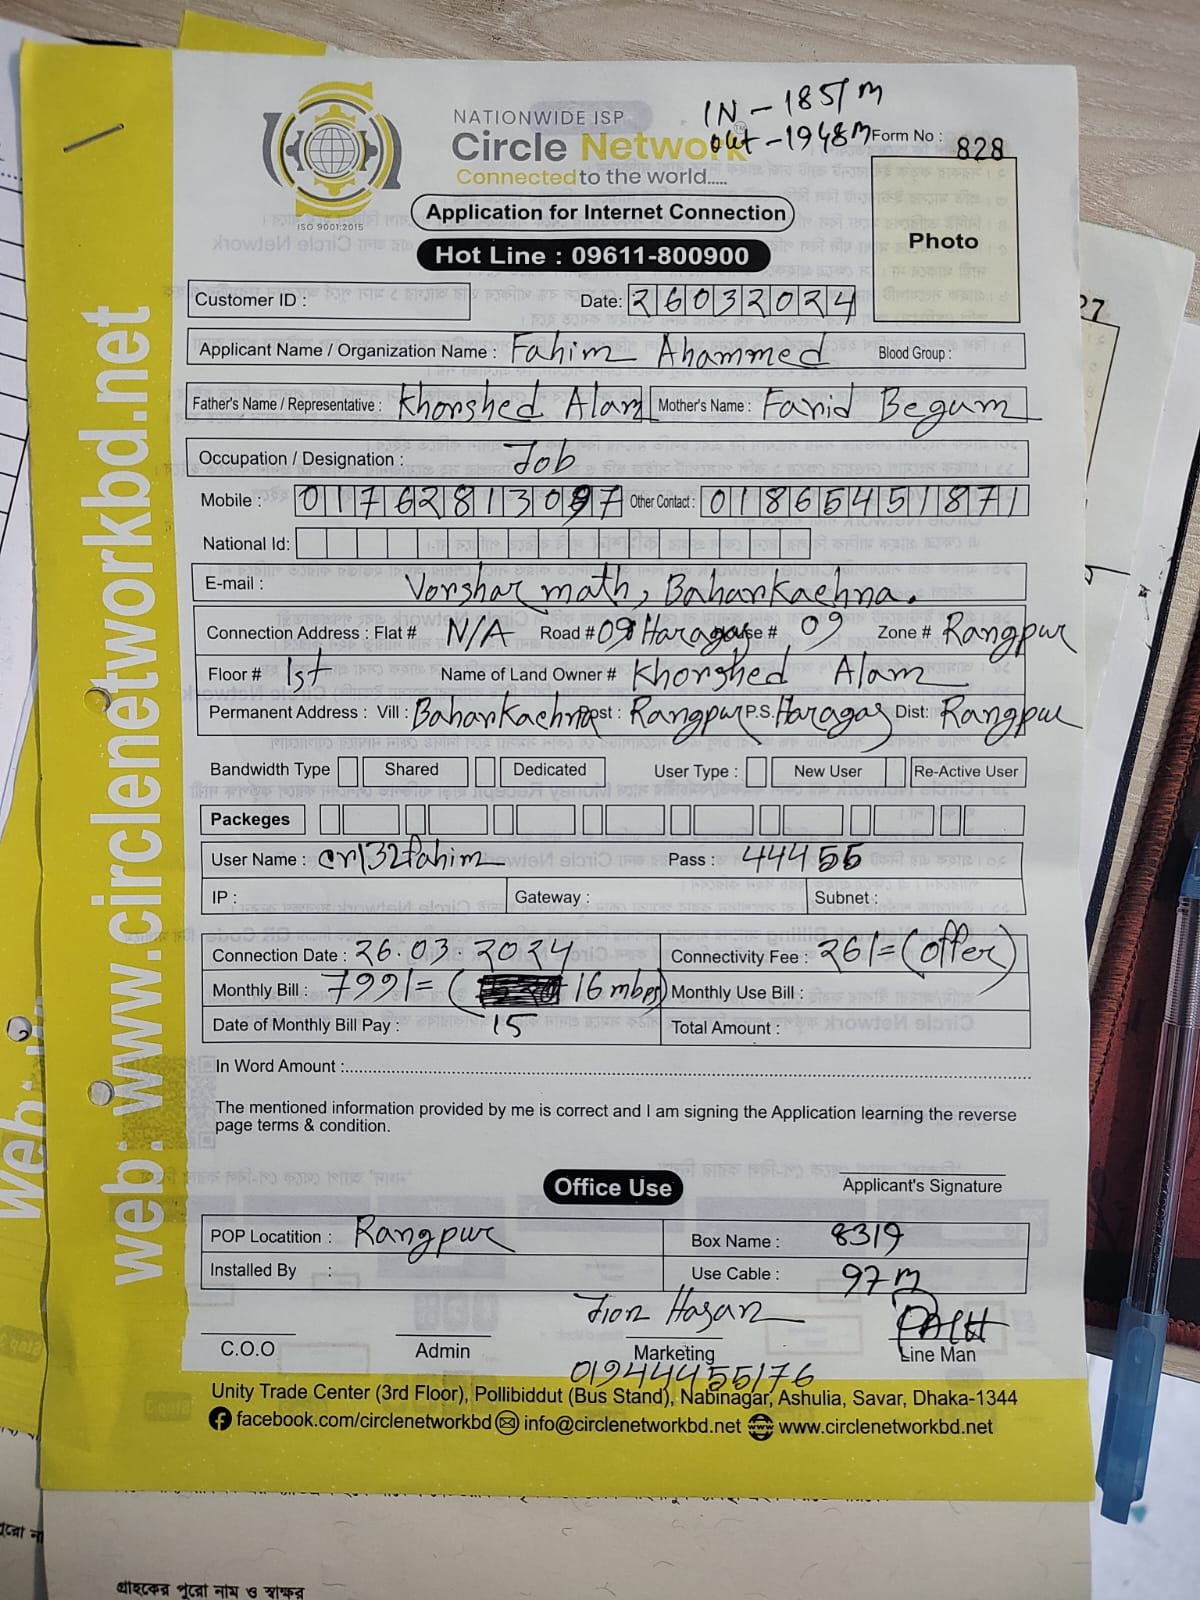 IN - 1851 m
out - 1948 m
NATIONWIDE ISP
Circle Network
Connected to the world.....
ISO 9001:2015
Form No : 828
Photo
Application for Internet Connection
Hot Line : 09611-800900
Customer ID :
Date: 26032024
Applicant Name / Organization Name : Fahim Ahammed Blood Group :
Father's Name / Representative : Khorshed Alam Mother's Name : Farid Begum
Occupation / Designation : Job
Mobile : 01762813097 Other Contact : 01865451871
National Id:
E-mail : Vorshar math, Baharkachna.
Connection Address : Flat # N/A Road # 09 Haragas House # 09 Zone # Rangpur
Floor # 1st Name of Land Owner # Khorshed Alam
Permanent Address : Vill : Baharkachna Post : Rangpur P.S. Haragas Dist: Rangpur
Bandwidth Type Shared Dedicated User Type : New User Re-Active User
Packeges
User Name : crl32fahim Pass : 444555
IP : Gateway : Subnet :
Connection Date : 26.03.2024 Connectivity Fee : 26/= (offer)
Monthly Bill : 799/= ( 16 mbps) Monthly Use Bill :
Date of Monthly Bill Pay : 15 Total Amount :
In Word Amount :
The mentioned information provided by me is correct and I am signing the Application learning the reverse
page terms & condition.
Office Use
Applicant's Signature
POP Locatition : Rangpur Box Name : 8319
Installed By : Use Cable : 97 m
Hasan
C.O.O Admin Marketing Line Man
01944455176
Unity Trade Center (3rd Floor), Pollibiddut (Bus Stand), Nabinagar, Ashulia, Savar, Dhaka-1344
facebook.com/circlenetworkbd info@circlenetworkbd.net www.circlenetworkbd.net
web: www.circlenetworkbd.net
গ্রাহকের পুরো নাম ও স্বাক্ষর